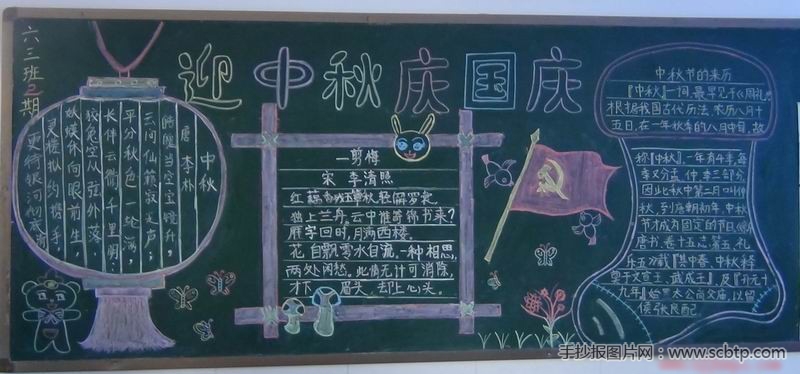 六三班2期
迎中秋庆国庆
中秋
唐 李朴
皓魄当空宝镜升，
云间仙籁寂无声；
平分秋色一轮满，
长伴云衢千里明；
狡兔空从弦外落，
妖蟆休向眼前生，
灵槎拟约携手，
更待银河彻底清
一剪梅
宋 李清照
红藕香残玉簟秋，轻解罗裳，
独上兰舟。云中谁寄锦书来？
雁字回时，月满西楼。
花自飘零水自流，一种相思，
两处闲愁。此情无计可消除，
才下眉头，却上心头。
中秋节的来历
『中秋』一词，最早见于《周礼》
根据我国古代历法，农历八月十
五日，在一年秋季的八月中旬，故
称『中秋』。一年有4季，每
季又分孟、仲、季三部分，
因此秋中第二月叫仲
秋，到唐朝初年，中秋
节才成为固定的节日。《新
唐书·卷十五志第五·礼
乐五》载『其中春、中秋释
奠于文宣王、武成王』，及『开元十
九年』始置太公尚父庙，以留
侯张良配。
手抄报图片网-www.scbtp.com